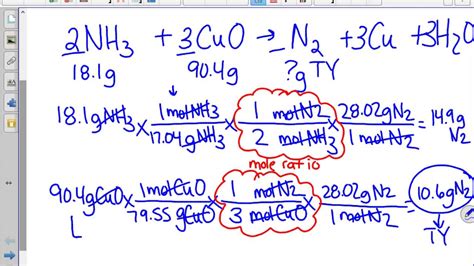 2NH₃ + 3CuO → _N₂ + 3Cu + 3H₂O
18.1g 90.4g ?g TY
18.1gNH₃ × 1molNH₃/17.04gNH₃ × 1 molN₂/2 molNH₃ × 28.02gN₂/1molN₂ = 14.9g N₂
mole ratio
90.4gCuO × 1molCuO/79.55gCuO × 1 molN₂/3 molCuO × 28.02gN₂/1molN₂ = 10.6gN₂
L TY